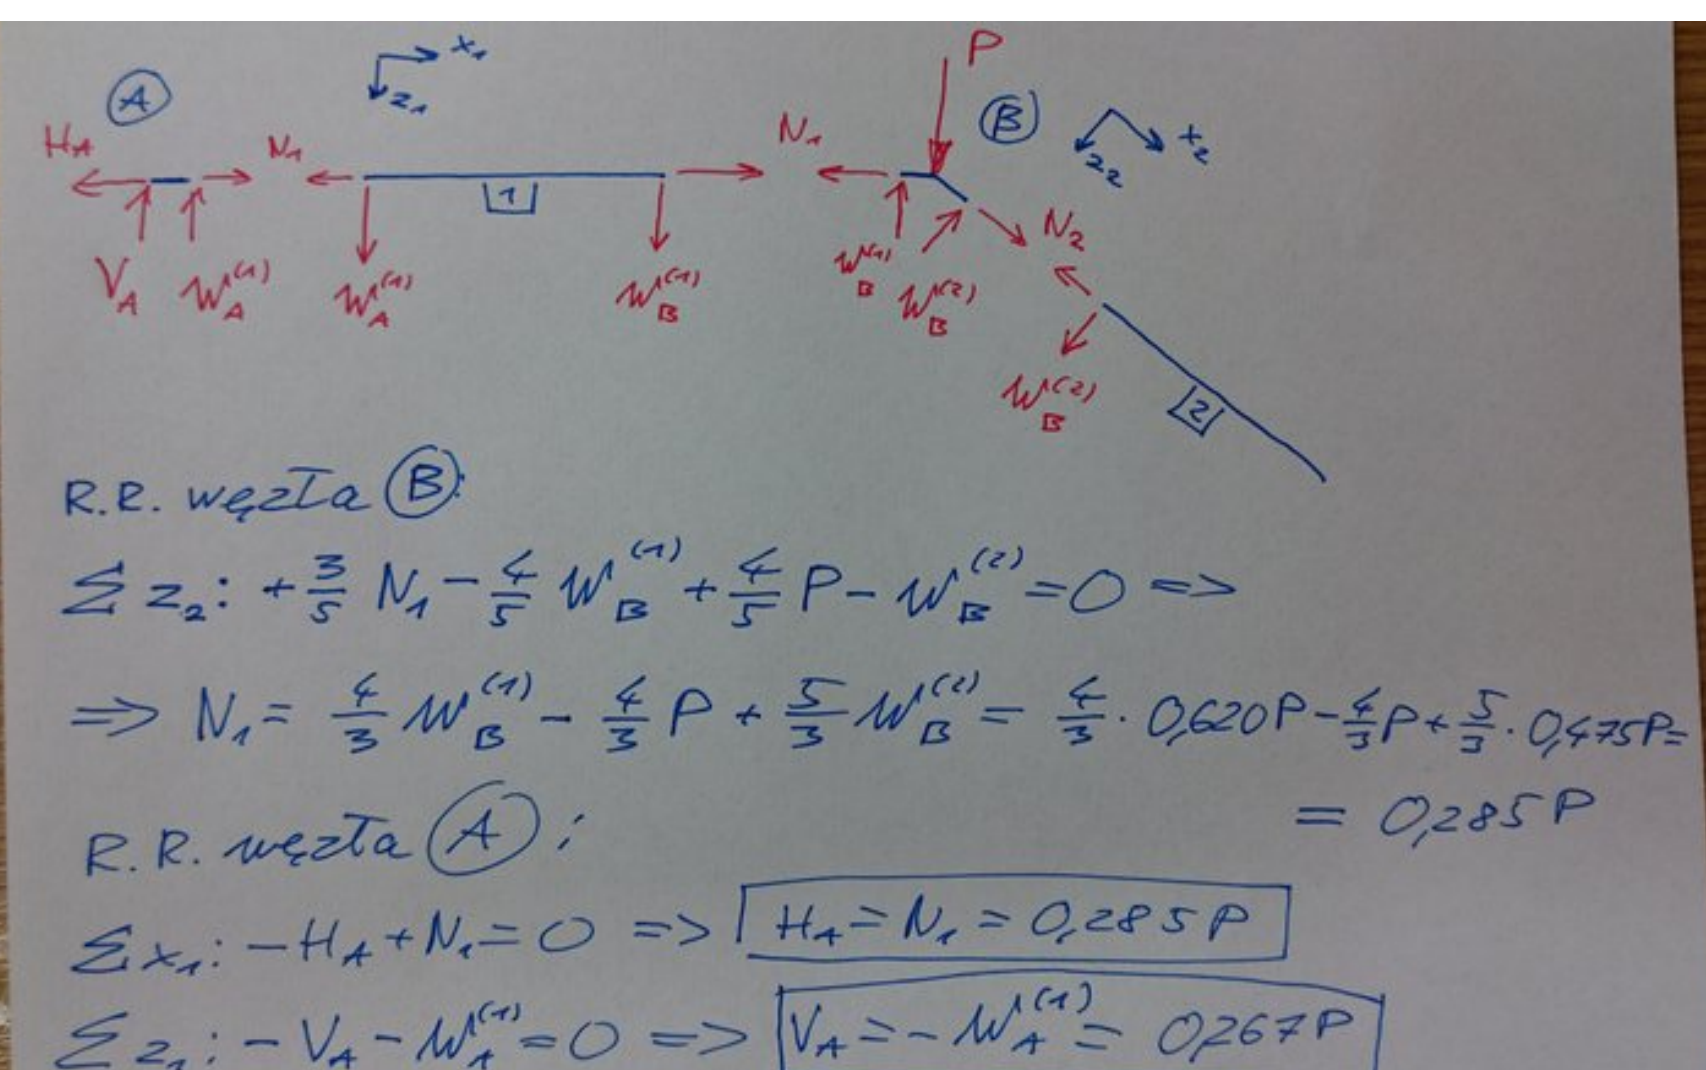 A x₁ z₁ P B x₂ z₂
H_A N₁ N₁ N₂
1
V_A W_A⁽¹⁾ W_A⁽¹⁾ W_B⁽¹⁾ W_B⁽¹⁾ W_B⁽²⁾
W_B⁽²⁾ 2
R.R. węzła B:
Σ z₂: + 3/5 N₁ - 4/5 W_B⁽¹⁾ + 4/5 P - W_B⁽²⁾ = 0 =>
=> N₁ = 4/3 W_B⁽¹⁾ - 4/3 P + 5/3 W_B⁽²⁾ = 4/3 · 0,620P - 4/3 P + 5/3 · 0,475P =
= 0,285P
R.R. węzła A:
Σ x₁: - H_A + N₁ = 0 => H_A = N₁ = 0,285P
Σ z₁: - V_A - W_A⁽¹⁾ = 0 => V_A = - W_A⁽¹⁾ = 0,267P